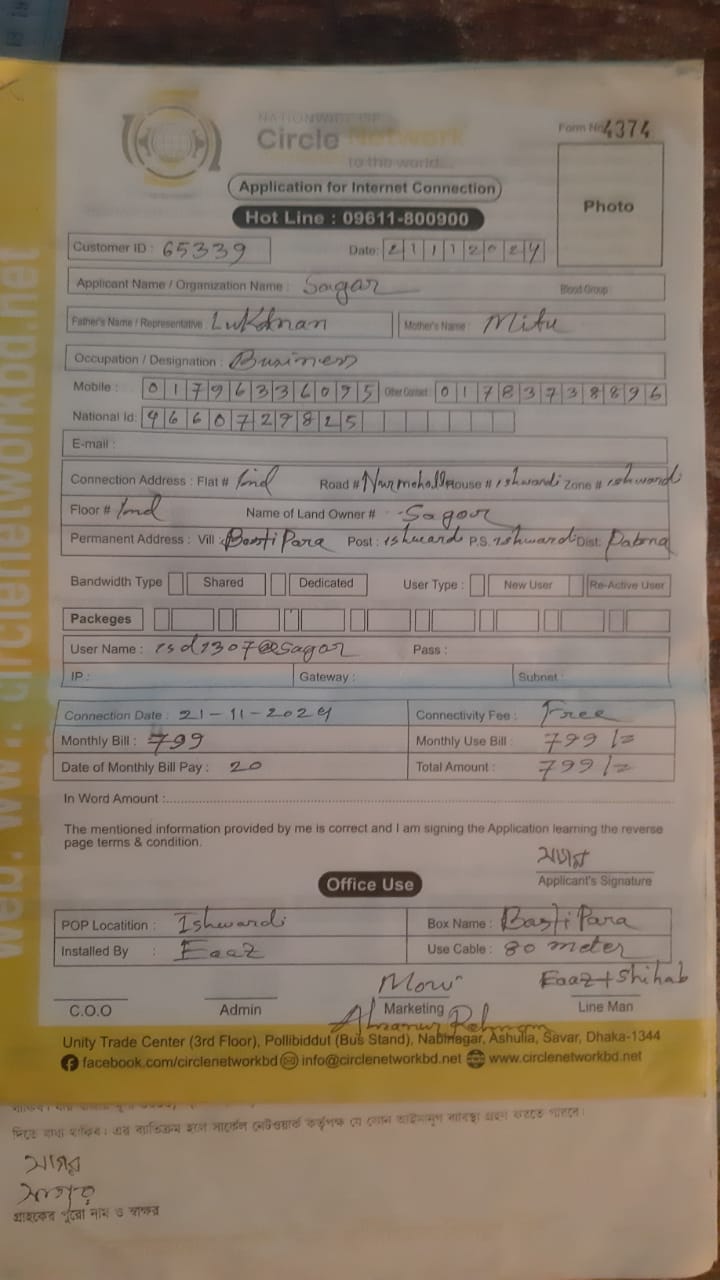 NATIONWIDE ISP
Circle Network
to the world...
Form No 4374
Application for Internet Connection
Photo
Hot Line : 09611-800900
Customer ID : 65339 Date: 21112024
Applicant Name / Organization Name : Sagar Blood Group
Father's Name / Representative : Lukdnan Mother's Name : Mitu
Occupation / Designation : Business
Mobile : 01796336095 Other Contact 01783738896
National Id: 4660729825
E-mail :
Connection Address : Flat # Road # Nurmoholl House # ishwardi Zone # ishwardi
Floor # Name of Land Owner # Sagor
Permanent Address : Vill : BastiPara Post : ishwardi P.S. ishwardi Dist. Pabna
Bandwidth Type Shared Dedicated User Type : New User Re-Active User
Packeges
User Name : isd1307@sagar Pass :
IP : Gateway : Subnet :
Connection Date : 21-11-2024 Connectivity Fee : Free
Monthly Bill : 799 Monthly Use Bill : 799/=
Date of Monthly Bill Pay : 20 Total Amount : 799/=
In Word Amount :
The mentioned information provided by me is correct and I am signing the Application learning the reverse
page terms & condition.
সাগর
Applicant's Signature
Office Use
POP Locatition : Ishwardi Box Name : BastiPara
Installed By : Eaaz Use Cable : 80 meter
Eaaz+Shihab
C.O.O Admin Marketing Line Man
Unity Trade Center (3rd Floor), Pollibiddut (Bus Stand), Nabinagar, Ashulia, Savar, Dhaka-1344
facebook.com/circlenetworkbd info@circlenetworkbd.net www.circlenetworkbd.net
web: www.circlenetworkbd.net
দিতে বাধ্য থাকিব। এর ব্যতিক্রম হলে সার্কেল নেটওয়ার্ক কর্তৃপক্ষ যে কোন আইনানুগ ব্যবস্থা গ্রহণ করতে পারবে।
সাগর
সাগর
গ্রাহকের পুরো নাম ও স্বাক্ষর